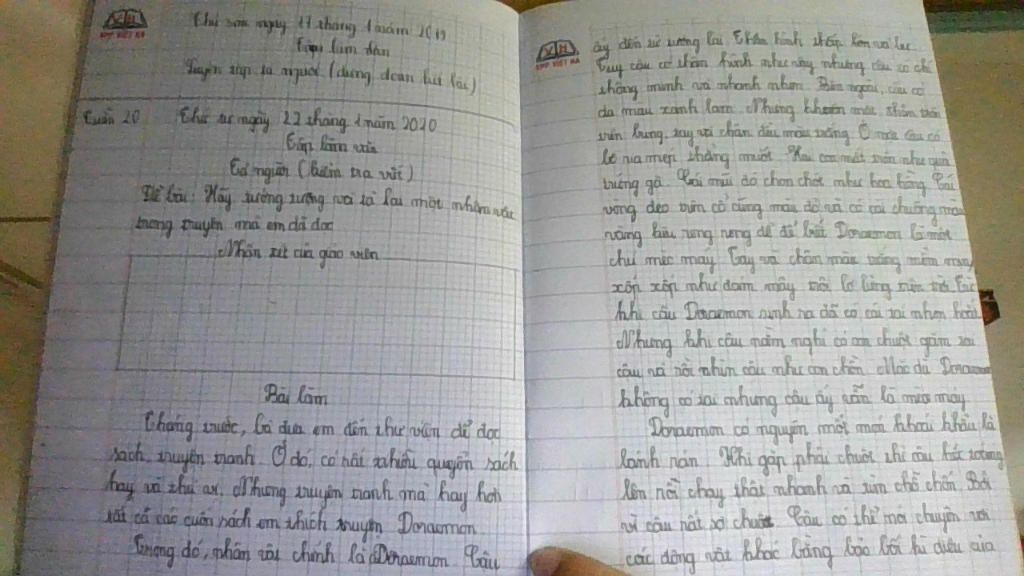 VH
NPP VIỆT HÀ
Thứ sáu ngày 17 tháng 1 năm 2019
Tập làm văn
Luyện tập tả người (dựng đoạn kết bài)
Tuần 20
Thứ tư ngày 22 tháng 1 năm 2020
Tập làm văn
Tả người (kiểm tra viết)
Đề bài: Hãy tưởng tượng và tả lại một nhân vật
trong truyện mà em đã đọc
Nhận xét của giáo viên
Bài làm
Tháng trước, bố đưa em đến thư viện để đọc
sách, truyện tranh. Ở đó, có rất nhiều quyển sách
hay và thú vị. Nhưng truyện tranh mà hay hơn
tất cả các cuốn sách em thích truyện Doraemon.
Trong đó, nhân vật chính là Doraemon. Cậu
VH
NPP VIỆT HÀ
ấy đến từ tương lai. Thân hình thấp lùn và
Tuy cậu có thân hình như vậy nhưng cậu có chí
thông minh và nhanh nhẹn. Bên ngoài, cậu có
da màu xanh lam. Nhưng khuôn mặt,
trên bụng, tay và chân đều màu trắng. Ở mặt cậu có
ria mép thẳng muốt. Hai con mắt tròn như quả
trứng gà. Cái mũi đỏ chon chót như hoa hồng. Cái
vòng đeo trên cổ cũng màu đỏ và có cái chuông màu
vàng kêu reng reng để đề biết Doraemon là một
chú mèo máy. Tay và chân màu trắng mềm mại,
xốp xốp như đám mây trôi lơ lửng trên trời. Lúc
khi cậu Doraemon sinh ra đã có cái tai nhọn hoắt.
Nhưng khi cậu nằm nghỉ có con chuột gặm tai
cậu và rồi nhìn cậu như con chồn. Mặc dù Doraemon
không có tai nhưng cậu ấy vẫn là mèo máy
Doraemon có nguyên một món khoái khẩu là
bánh rán. Khi gặp phải chuột thì cậu hét toáng
lên rồi chạy thật nhanh và tìm chỗ chốn. Bởi
vì cậu rất sợ chuột. Cậu có thể nói chuyện với
các động vật khác bằng bảo bối kì diệu của